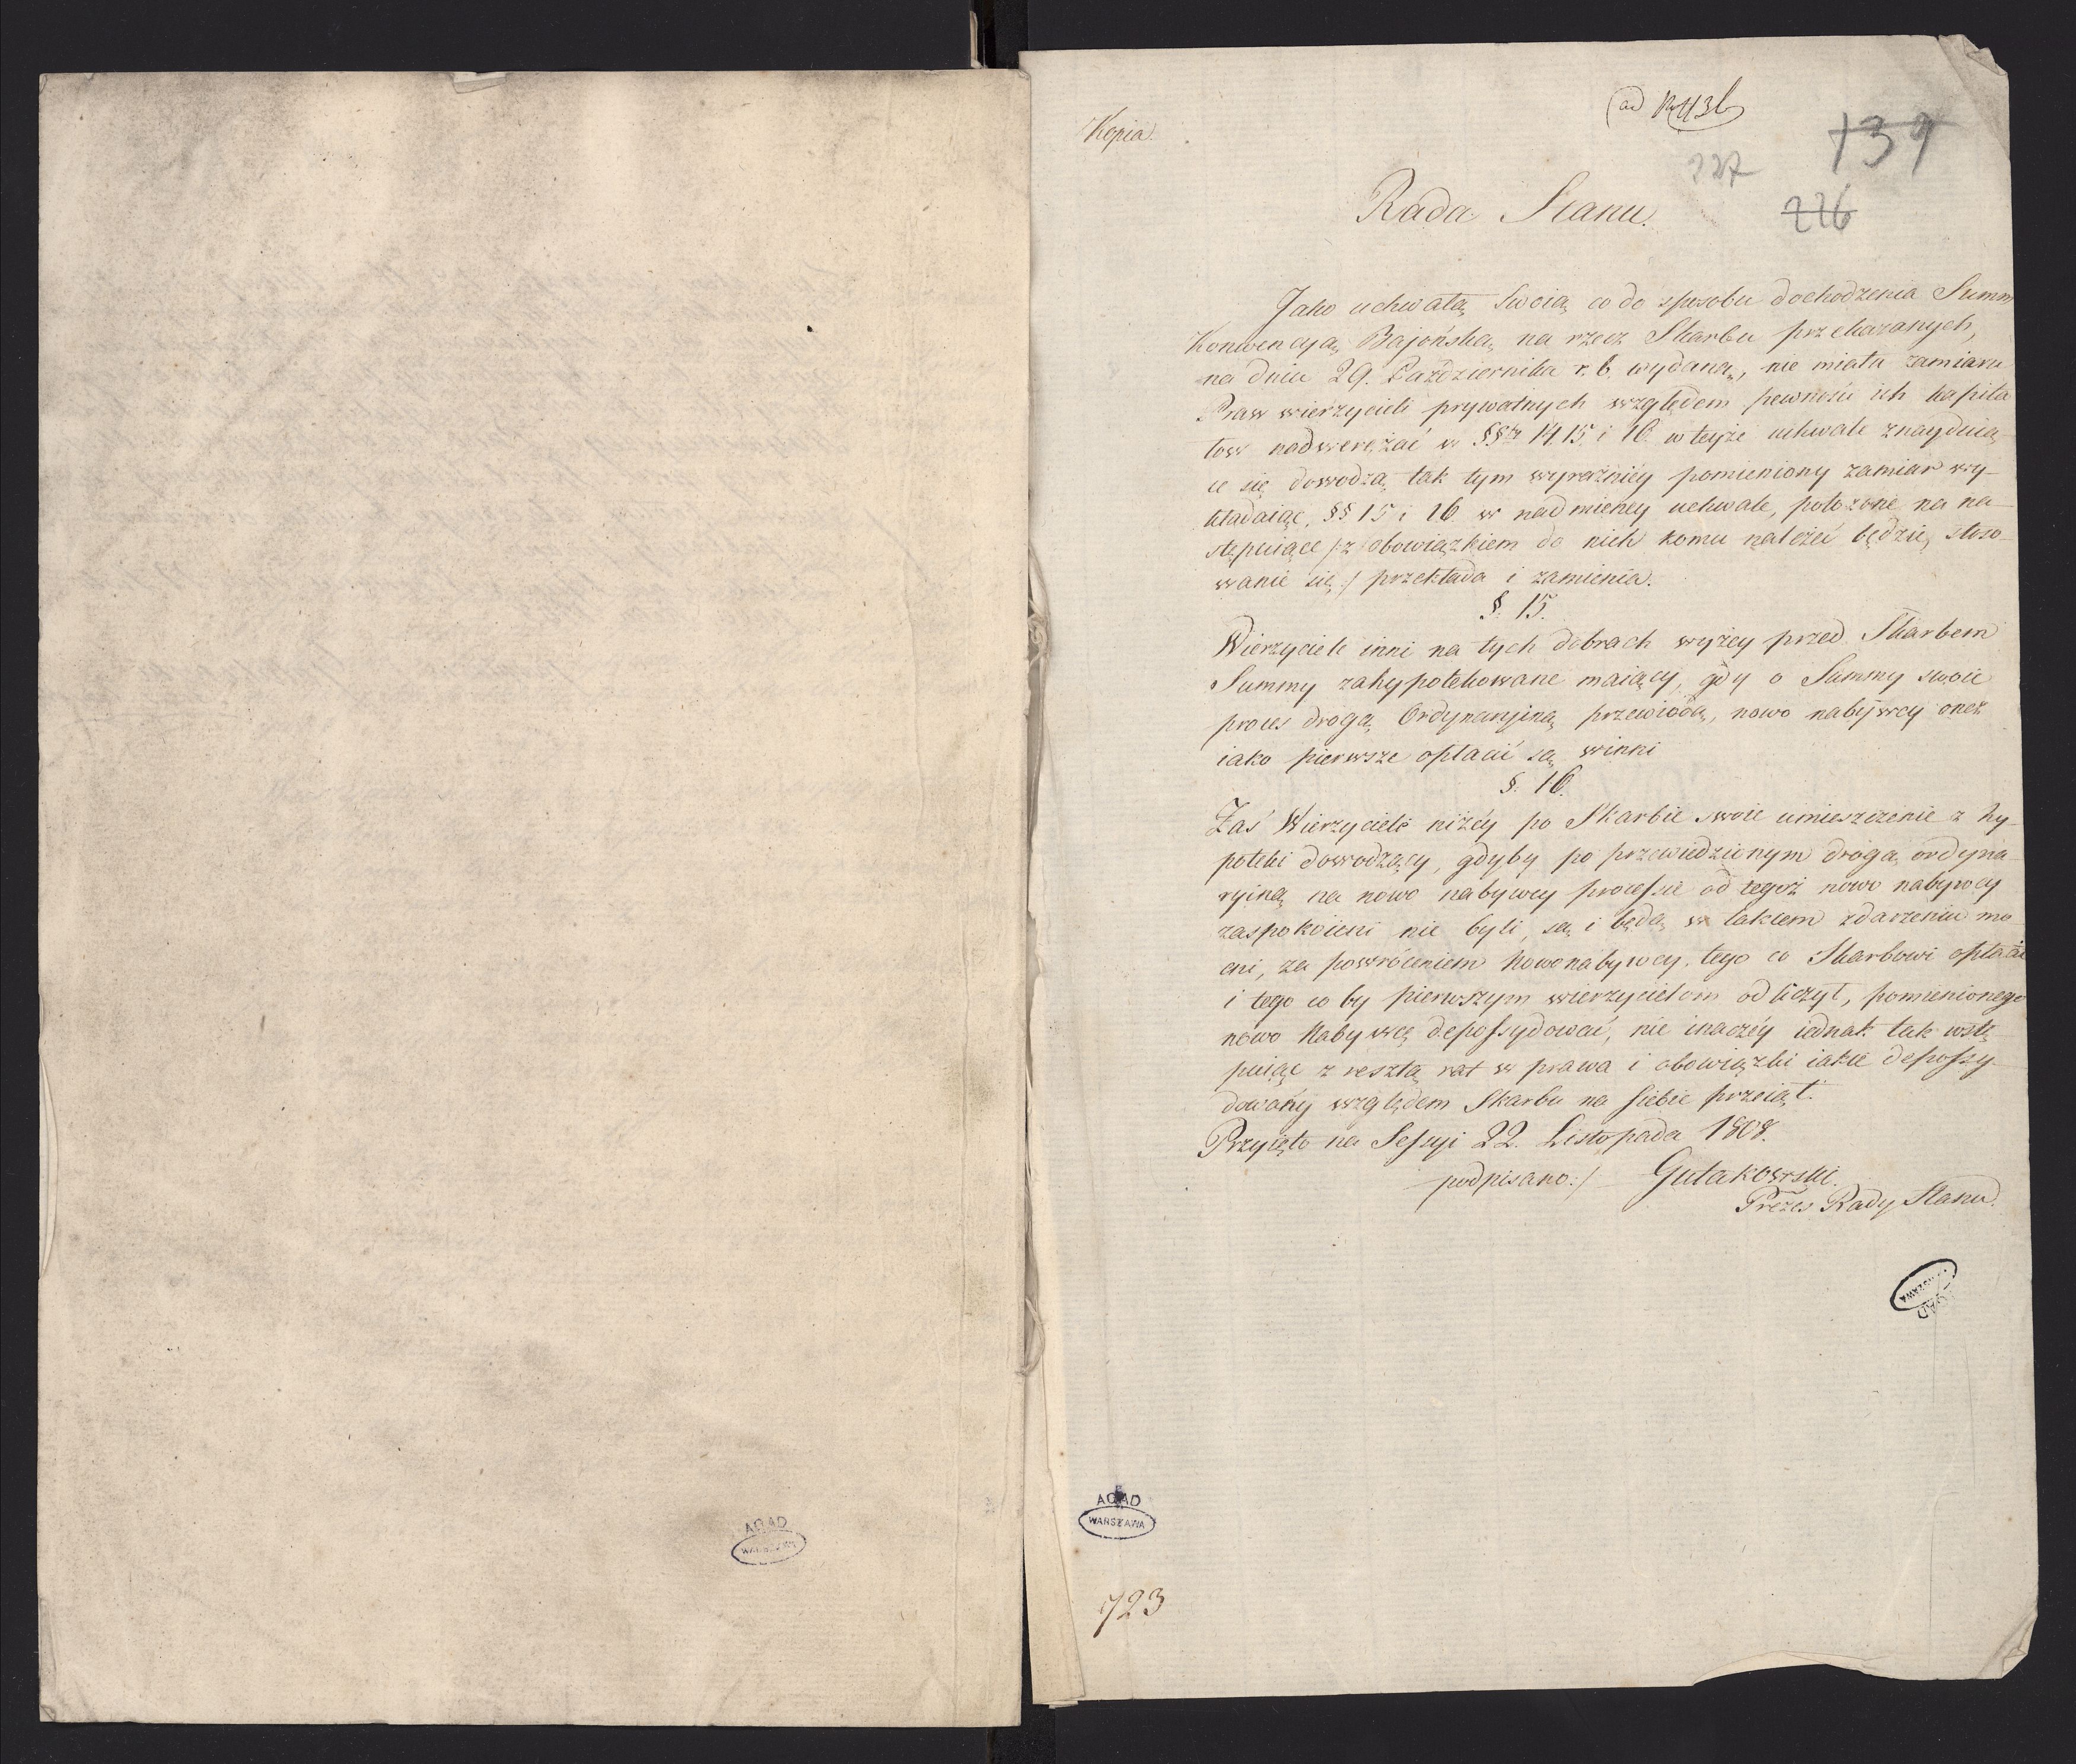 Kopia.
139
227
226
Rada Stanu.
Jako uchwałą swoią co do sposobu dochodzenia Summ
Konwencyą Bajońską na rzecz Skarbu przekazanych,
na dniu 29. Października r. b. wydaną, nie miała zamiaru
Praw wierzycieli prywatnych względem pewności ich kapita
łow nadwerężać w §§ 14. 15 i 16 w teyże uchwale znayduią-
ce się dowodzą, tak tym wyraźniey pomieniony zamiar wy-
kładaiąc, §§ 15 i 16 w nadmieney uchwale, położone na na-
stępuiące /: z obowiązkiem do nich komu należeć będzie, stoso-
wanie się :/ przekłada i zamienia.
§. 15.
Wierzyciele inni na tych dobrach wyżey przed Skarbem
Summy zahypotekowane maiący, gdy o Summy swoie
proces drogą Ordynaryiną przewiodą, nowo nabywcy onez
iako pierwsze opłacić są winni
§. 16.
Zaś Wierzyciele niżey po Skarbie swoie umieszczenie z hy-
poteki dowodzący, gdyby po przewiedzionym drogą ordyna-
ryiną na nowo nabywcy processie od tegoż nowo nabywcy
zaspokoieni nie byli, są i będą w takiem zdarzeniu mo
cni, za powróceniem Nowonabywcy, tego co Skarbowi opłacił
i tego co by pierwszym wierzycielom odliczył, pomienionego
nowo Nabywcę depossydować, nie inaczéy iednak tak wstę
puiąc z resztą rat w prawa i obowiązki iakie depossy-
dowany względem Skarbu na siebie przeiął.
Przyięto na Sessyi 22. Listopada 1808.
podpisano :/ Gutakowski.
Prezes Rady Stanu.
AGAD
WARSZAWA
AGAD
WARSZAWA
AGAD
WARSZAWA
723